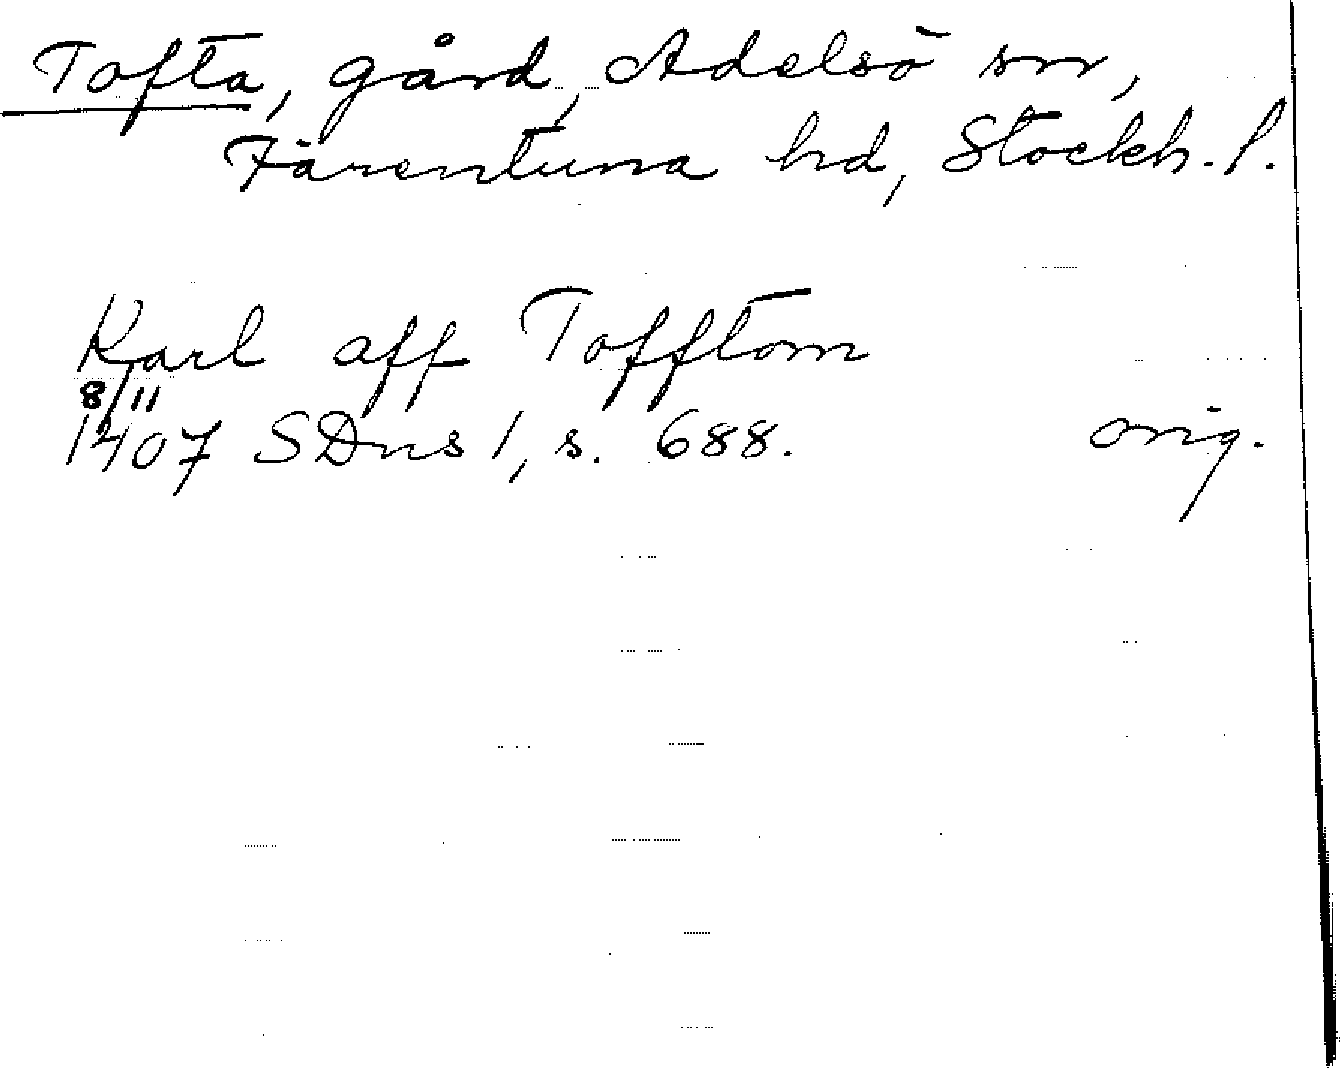 Tofta, gård, Adelsö sn,
Färentuna hd, Stockh. l.
Karl aff Tofftom
8/11
1407 SDns 1, s. 688. orig.